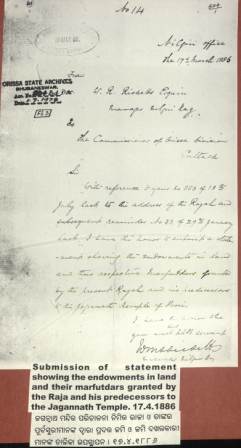 No 14
Nilgiri Office
The 17th March 1886
ORISSA STATE ARCHIVES
BHUBANESWAR
From
W. R. Ricketts Esquire
Manager Nilgiri Raj
To
The Commissioner of Orissa Division
Cuttack
Sir
With reference to your No of 10th
July last to the address of the Rajah and
subsequent reminder No 22 of 29th January
last, I have the honor to submit a state-
ment shewing the endowments in land
and their respective Marfutdars granted
by the present Rajah and his predecessors
to the Jagannath Temple of Pooree
I have the honor
Submission of statement
showing the endowments in land
and their marfutdars granted by
the Raja and his predecessors to
the Jagannath Temple. 17.4.1886
ଜଗନ୍ନାଥ ମନ୍ଦିର ପରିଚାଳନା ନିମିତ୍ତ ରାଜା ଓ ତାଙ୍କର
ପୂର୍ବସୂରୀମାନଙ୍କ ଦ୍ୱାରା ପ୍ରଦତ୍ତ ଜମି ଓ ଜମି ଦଖଲକାରୀ
ମାନଙ୍କ ତାଲିକା ଉପସ୍ଥାପନ । ୧୭.୪.୧୮୮୬